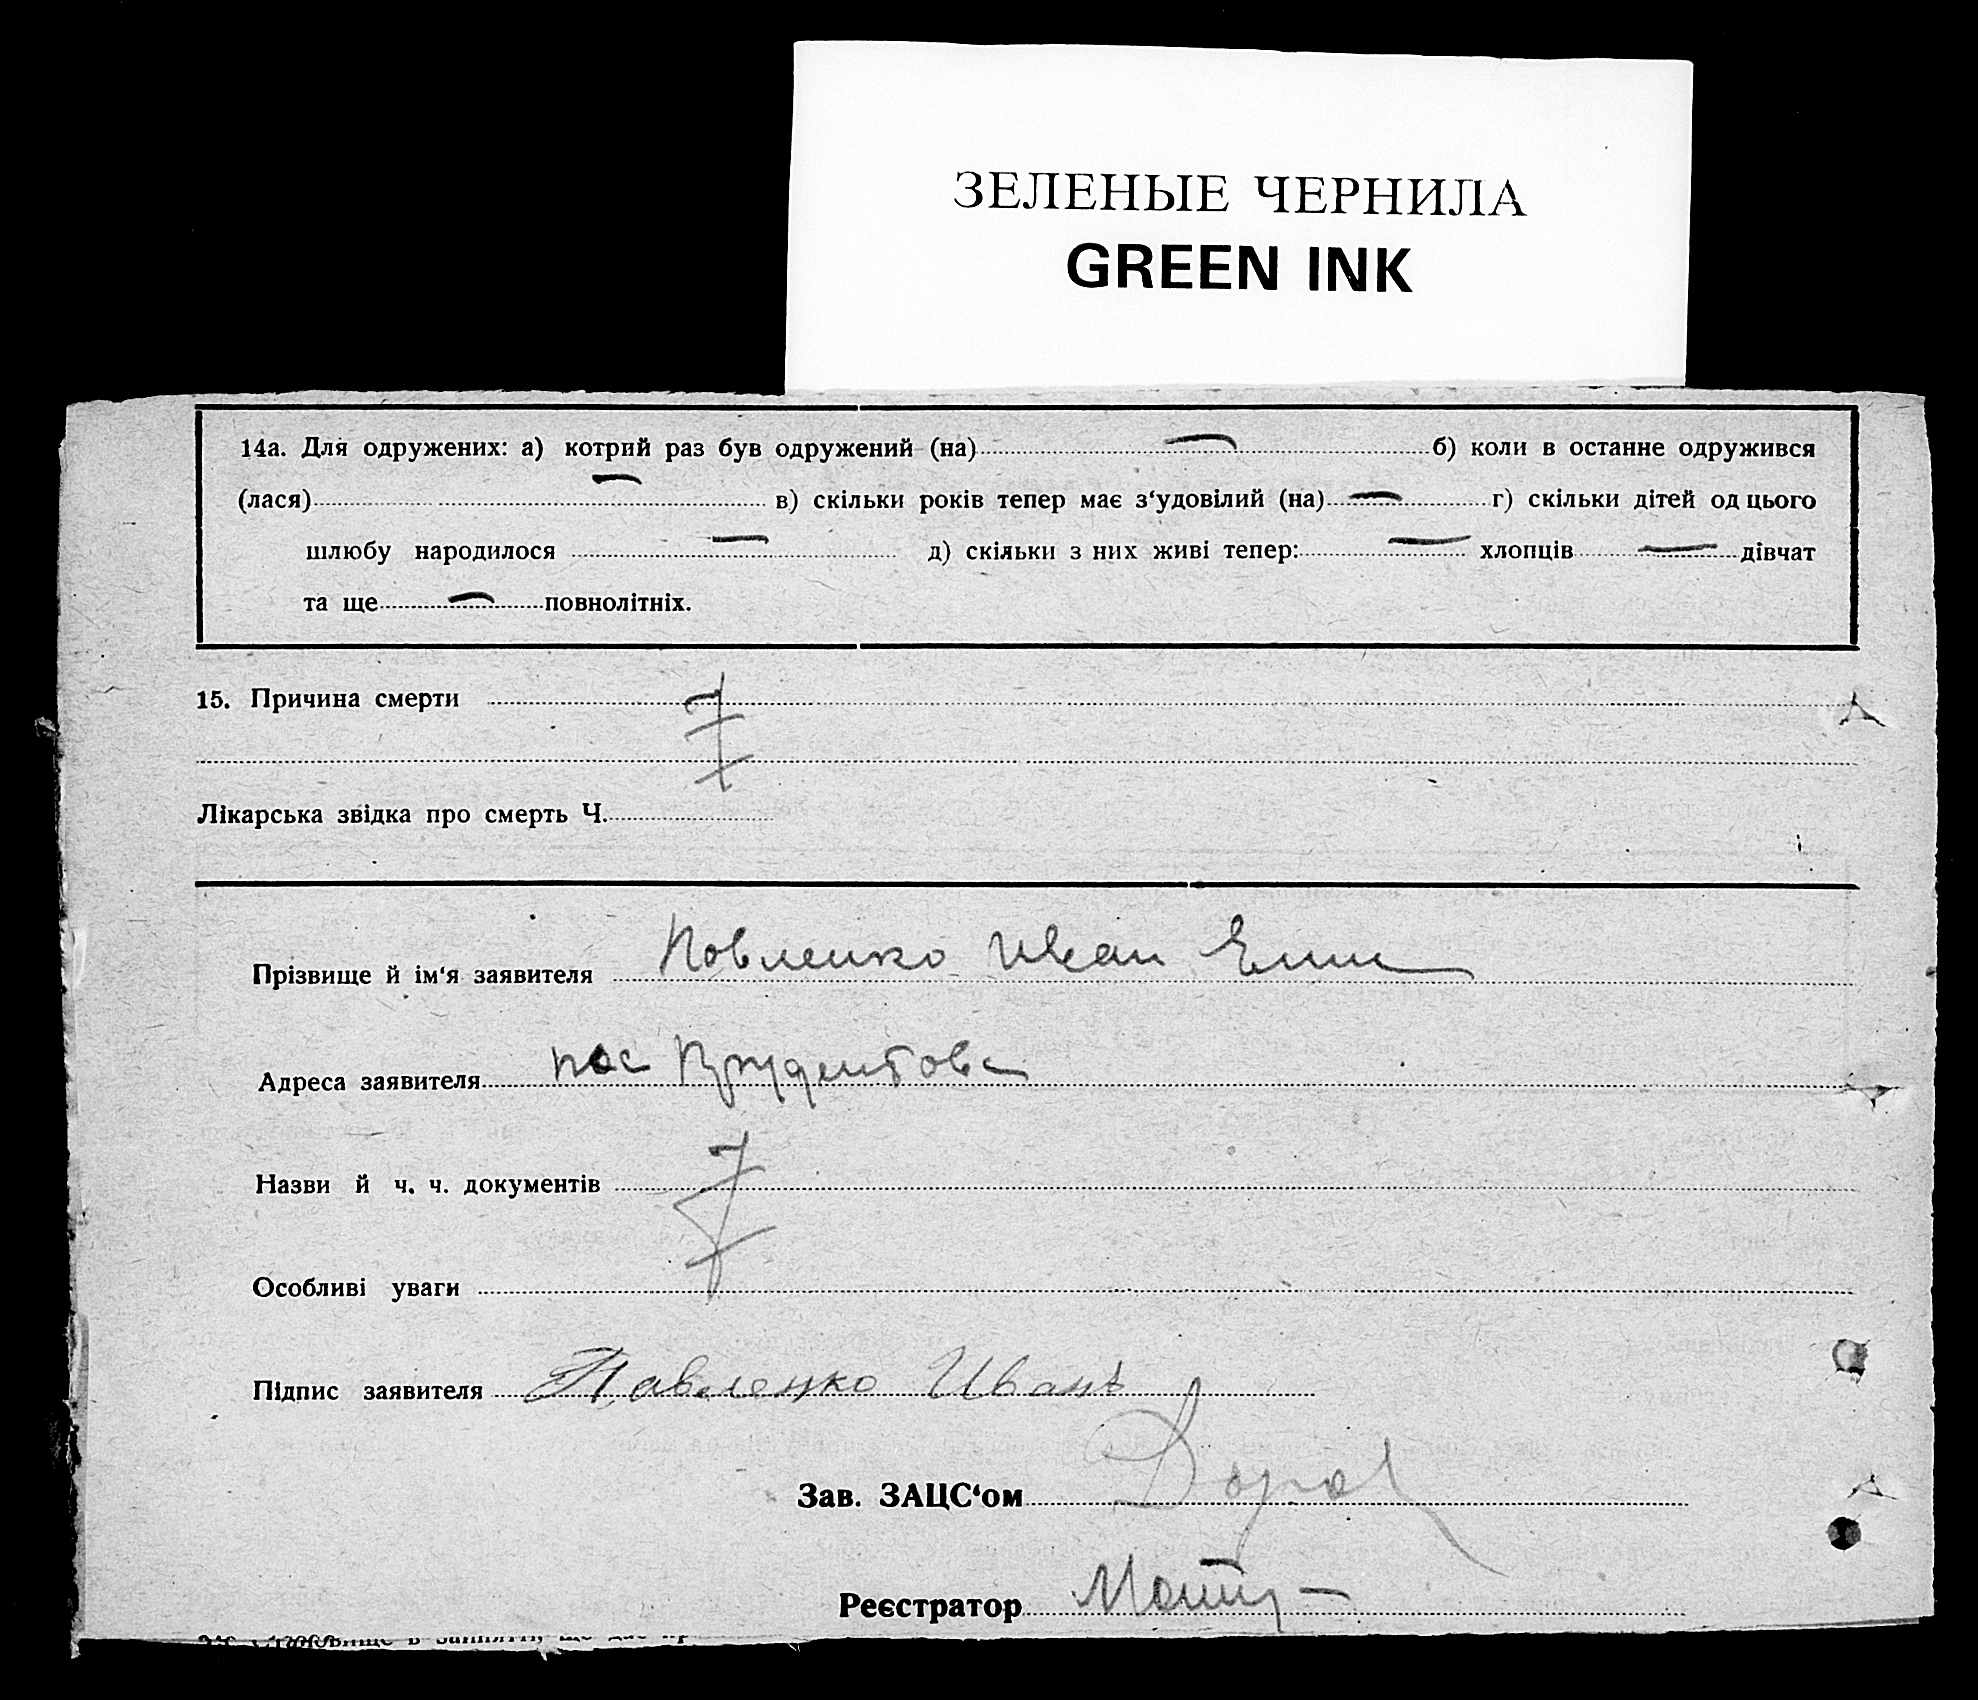 ЗЕЛЕНЫЕ ЧЕРНИЛА
GREEN INK
14а. Для одружених: а) котрий раз був одружений (на) — б) коли в останне одружився
(лася) — в) скільки років тепер має з‘удовілий (на) — г) скільки дітей од цього
шлюбу народилося — д) скільки з них живі тепер: — хлопців — дівчат
та ще — повнолітніх.
15. Причина смерти
Лікарська звідка про смерть Ч.
Прізвище й ім‘я заявителя Повленко Иван
Адреса заявителя пос
Назви й ч. ч. документів
Особливі уваги
Підпис заявителя Павленко Иванъ
Зав. ЗАЦС‘ом
Реєстратор